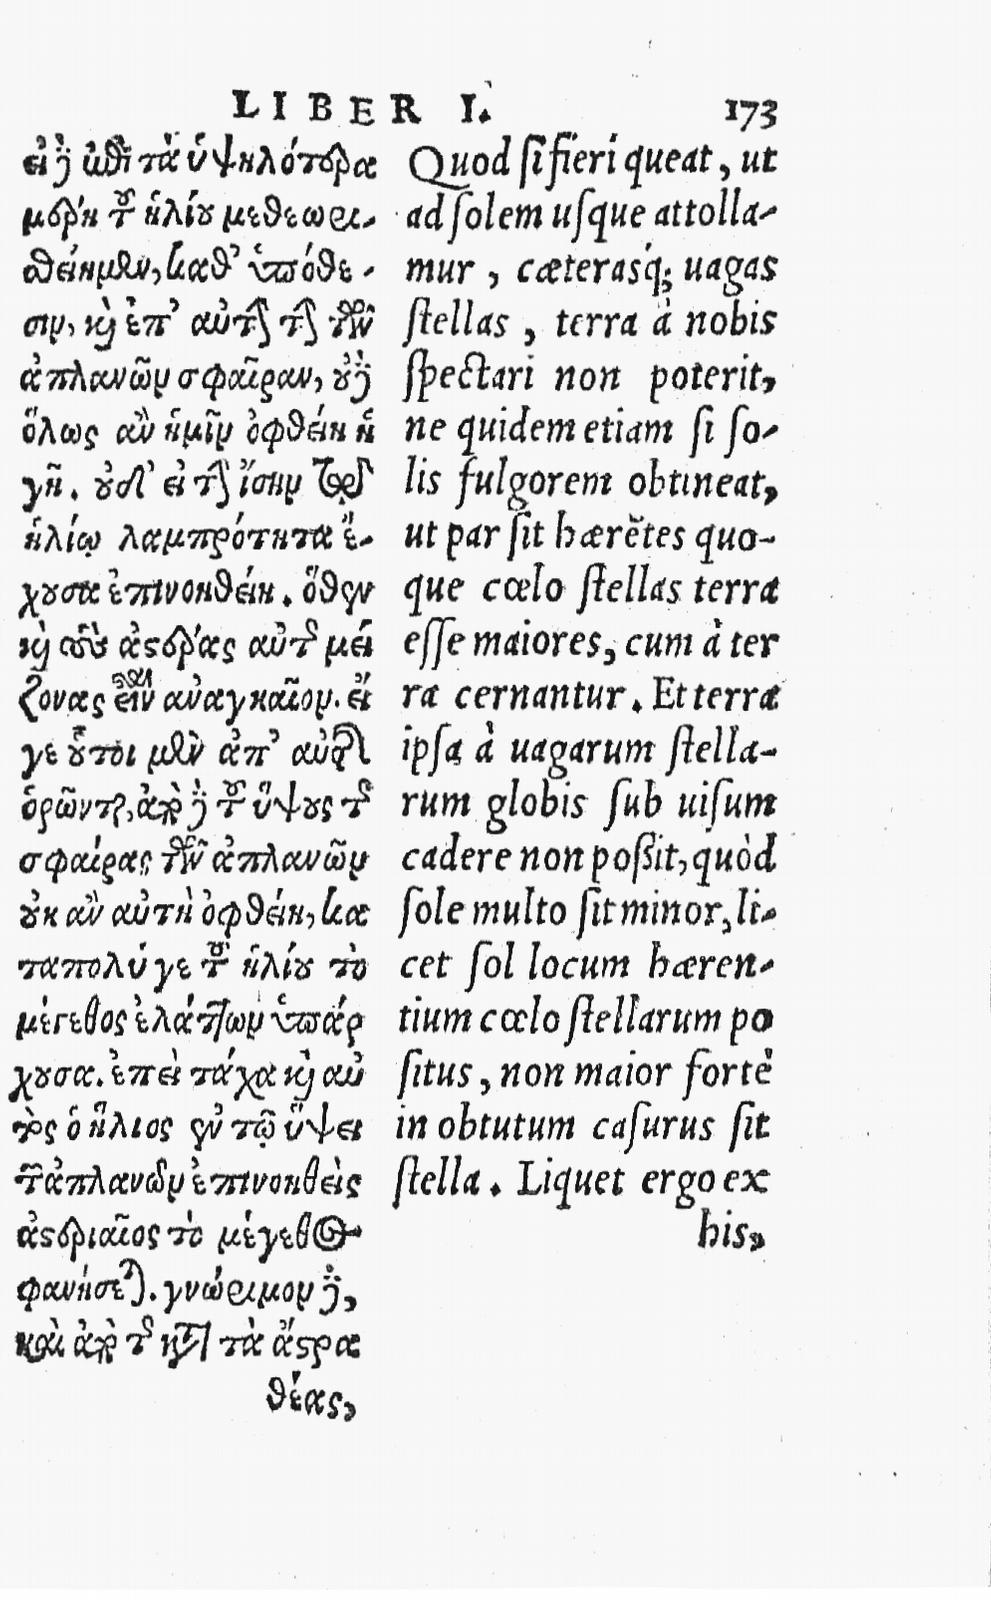 LIBER I. 173
εἰ δὲ ἐπὶ τὰ ὑψηλότερα
μέρη τοῦ ἡλίου μεθεωρι-
σθείημεν, καθ' ὑπόθε-
σιν, καὶ ἐπ' αὐτὴν τὴν τῶν
ἀπλανῶν σφαῖραν, οὐδὲ
ὅλως ἂν ἡμῖν ὀφθείη ἡ
γῆ. οὐδ' εἰ τὴν ἴσην τῷ
ἡλίῳ λαμπρότητα ἔ-
χουσα ἐπινοηθείη. ὅθεν
καὶ τοὺς ἀστέρας αὐτῆς μεί
ζονας εἶναι ἀναγκαῖον. εἴ
γε οὗτοι μὲν ἀπ' αὐτῆς
ὁρῶνται, ἀπὸ δὲ τοῦ ὕψους τῆς
σφαίρας τῶν ἀπλανῶν
οὐκ ἂν αὐτὴ ὀφθείη, κα
ταπολύ γε τοῦ ἡλίου τὸ
μέγεθος ἐλάττων ὑπάρ
χουσα. ἐπεὶ τάχα καὶ αὐ
τὸς ὁ ἥλιος ἐν τῷ ὕψει
τῶν ἀπλανῶν ἐπινοηθεὶς
ἀστεριαῖος τὸ μέγεθος
φανήσεται. γνώριμον δὲ,
καὶ ἀπὸ τῆς κατὰ τὰ ἄστρα
θέας,
Quod si fieri queat, ut
ad solem usque attolla-
mur, cæterasq́; uagas
stellas, terra à nobis
spectari non poterit,
ne quidem etiam si so-
lis fulgorem obtineat,
ut par sit hærẽtes quo-
que cœlo stellas terra
esse maiores, cum à ter
ra cernantur. Et terra
ipsa à uagarum stella-
rum globis sub uisum
cadere non poßit, quòd
sole multo sit minor, li-
cet sol locum hæren-
tium cœlo stellarum po
situs, non maior fortè
in obtutum casurus sit
stella. Liquet ergo ex
his,